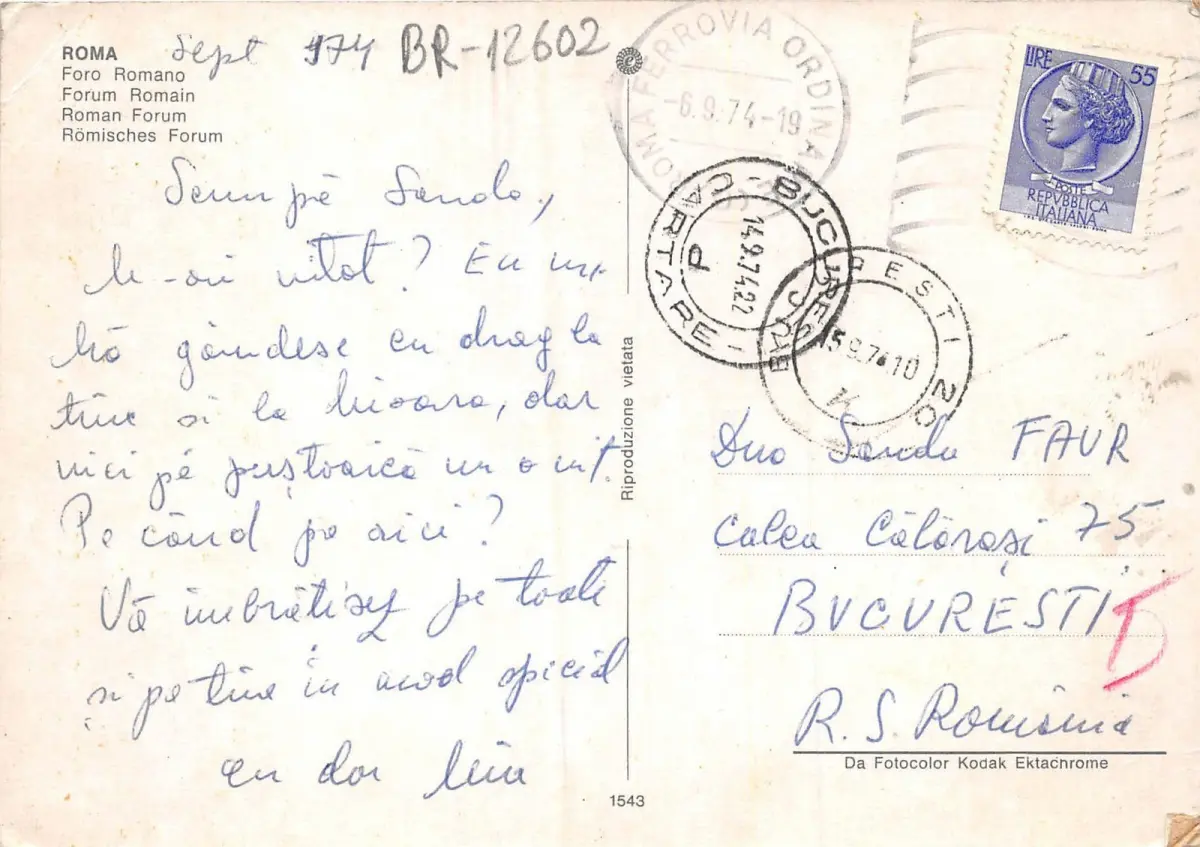 ROMA
Foro Romano
Forum Romain
Roman Forum
Römisches Forum
Sept 974 BR-12602
ROMA FERROVIA ORDINA
-6.9.74-19
LIRE 55
POSTE
REPVBBLICA
ITALIANA
BUCUREȘTI
CARTARE
14.9.74.22
P
BUCUREȘTI 20
15.9.74.10
Scumpă Sanda,
M-ai uitat? Eu mă
gândesc cu drag la
tine și la
nici pe puștoaică nu o uit.
Pe când pe aici?
Vă îmbrățișez pe toate
și pe tine în mod special
cu dor
Riproduzione vietata
Dna Sanda FAUR
Calea Călărași 75
BUCUREȘTI
R. S. România
Da Fotocolor Kodak Ektachrome
1543